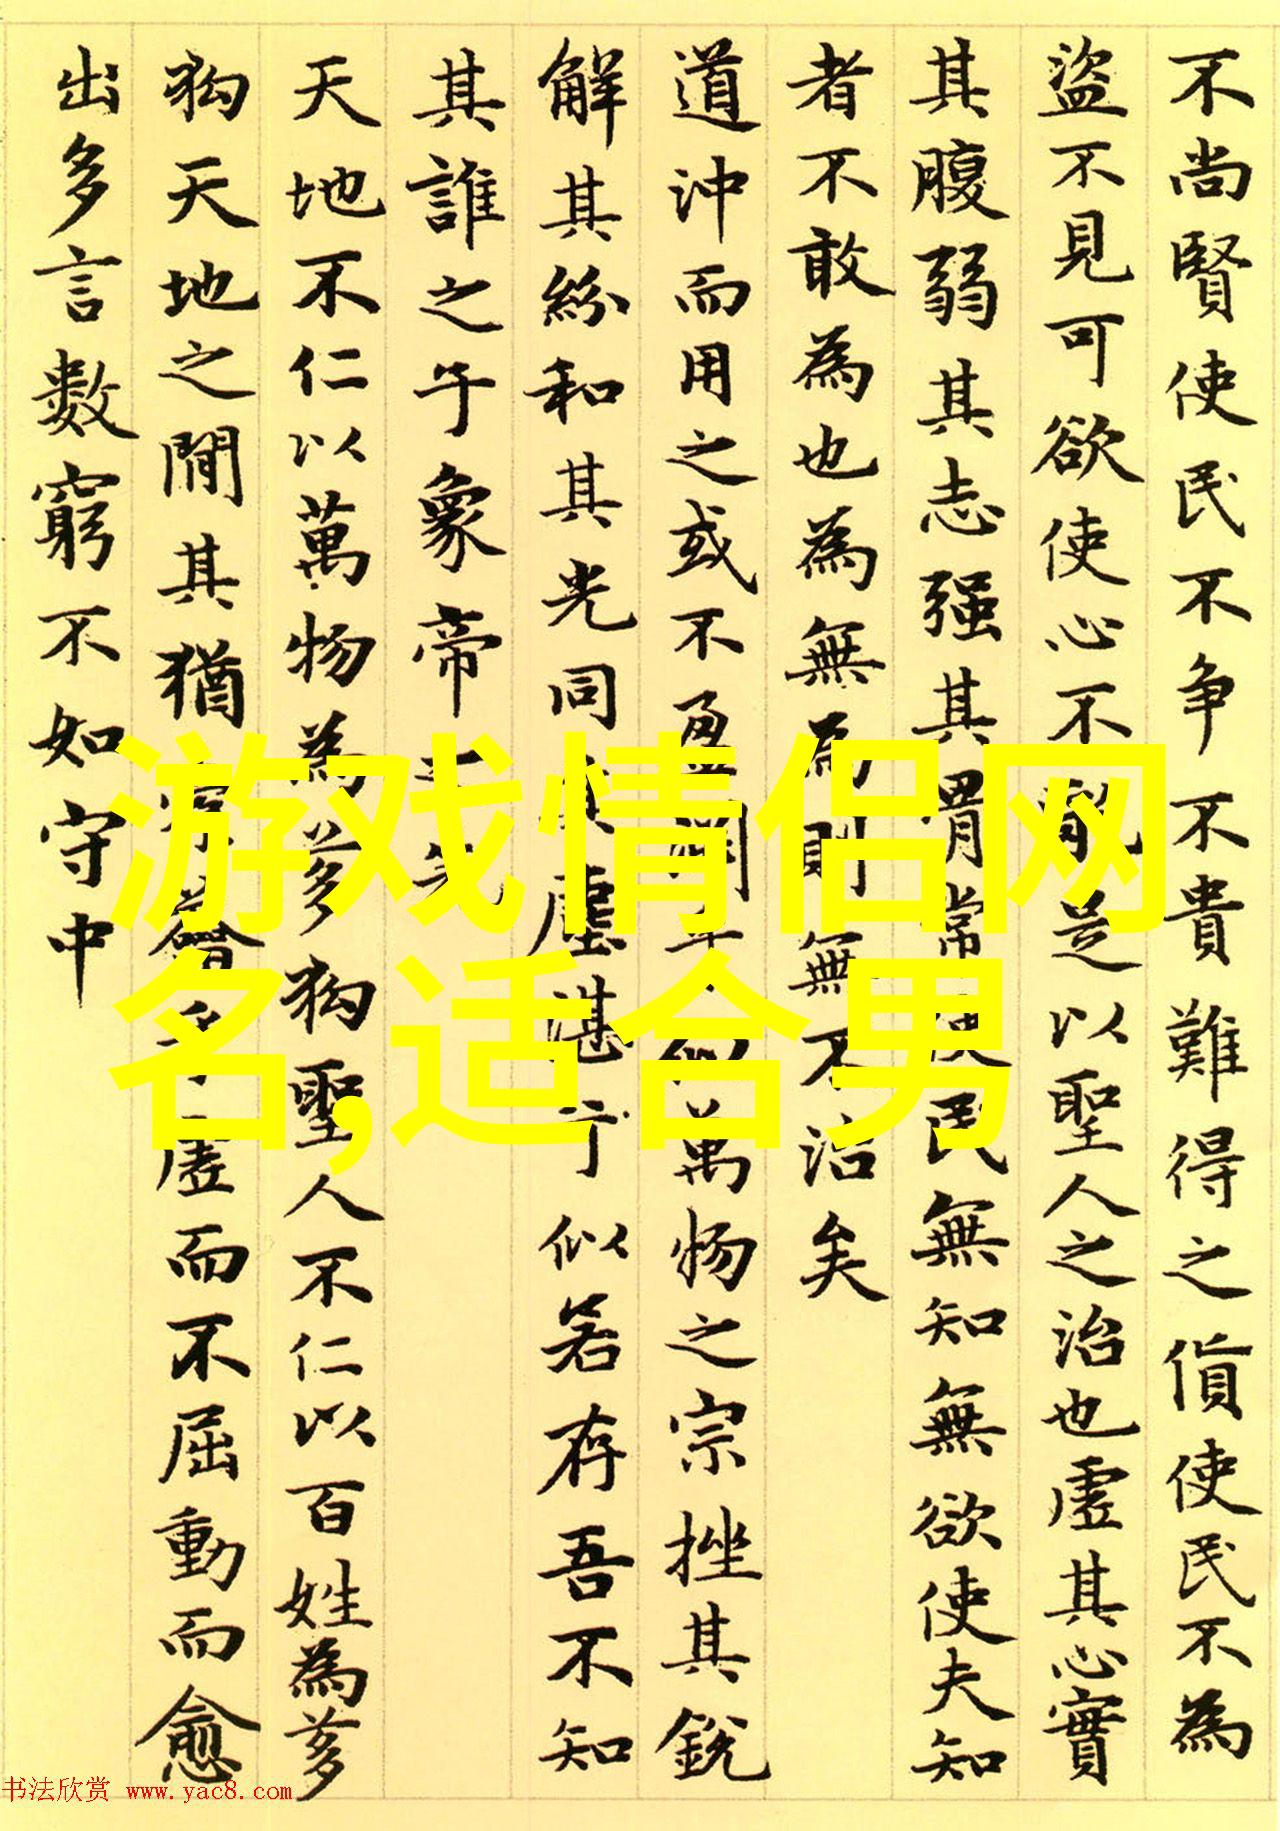 不尚賢使民不争不貴難得之貨使民不為
盜不見可欲使心不亂是以聖人之治也虛其心實
其腹弱其志强其骨常使民無知無欲使夫知
者不敢為也為無為則無不治矣
道沖而用之或不盈淵乎似萬物之宗挫其銳
解其紛和其光同其塵湛兮似若存吾不知
其誰之子象帝之先
天地不仁以萬物為芻狗聖人不仁以百姓為芻
狗天地之閒其猶橐籥乎虛而不屈動而愈
出多言數窮不如守中
游戏情侣网
名,适合男
书法欣赏 www.yac8.com